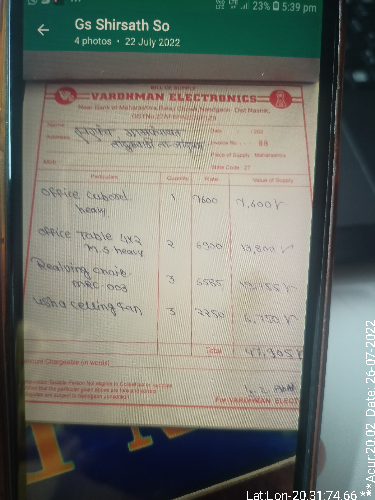 23% 5:39 pm
Gs Shirsath So
4 photos • 22 July 2022
BILL OF SUPPLY
VARDHMAN ELECTRONICS
Near Bank of Maharashtra, Dist. Nashik,
Name
Address
Date
Invoice No. 88
Place of Supply : Maharashtra
State Code : 27
Mob
Particulars Quantity Rate Value of Supply
Office Cuboard heavy 1 7600 7,600/-
Office Table 4x2 M.S heavy 2 6900 13,800/-
Realving chair MRC-003 3 6585 19,755/-
Usha Celling Fan 3 2250 6,750/-
Total 47,905/-
Amount Chargeable (in words)
For VARDHMAN ELECT
Lat:Lon-20.31:74.66 ***Acur:20.02 Date: 26-07-2022